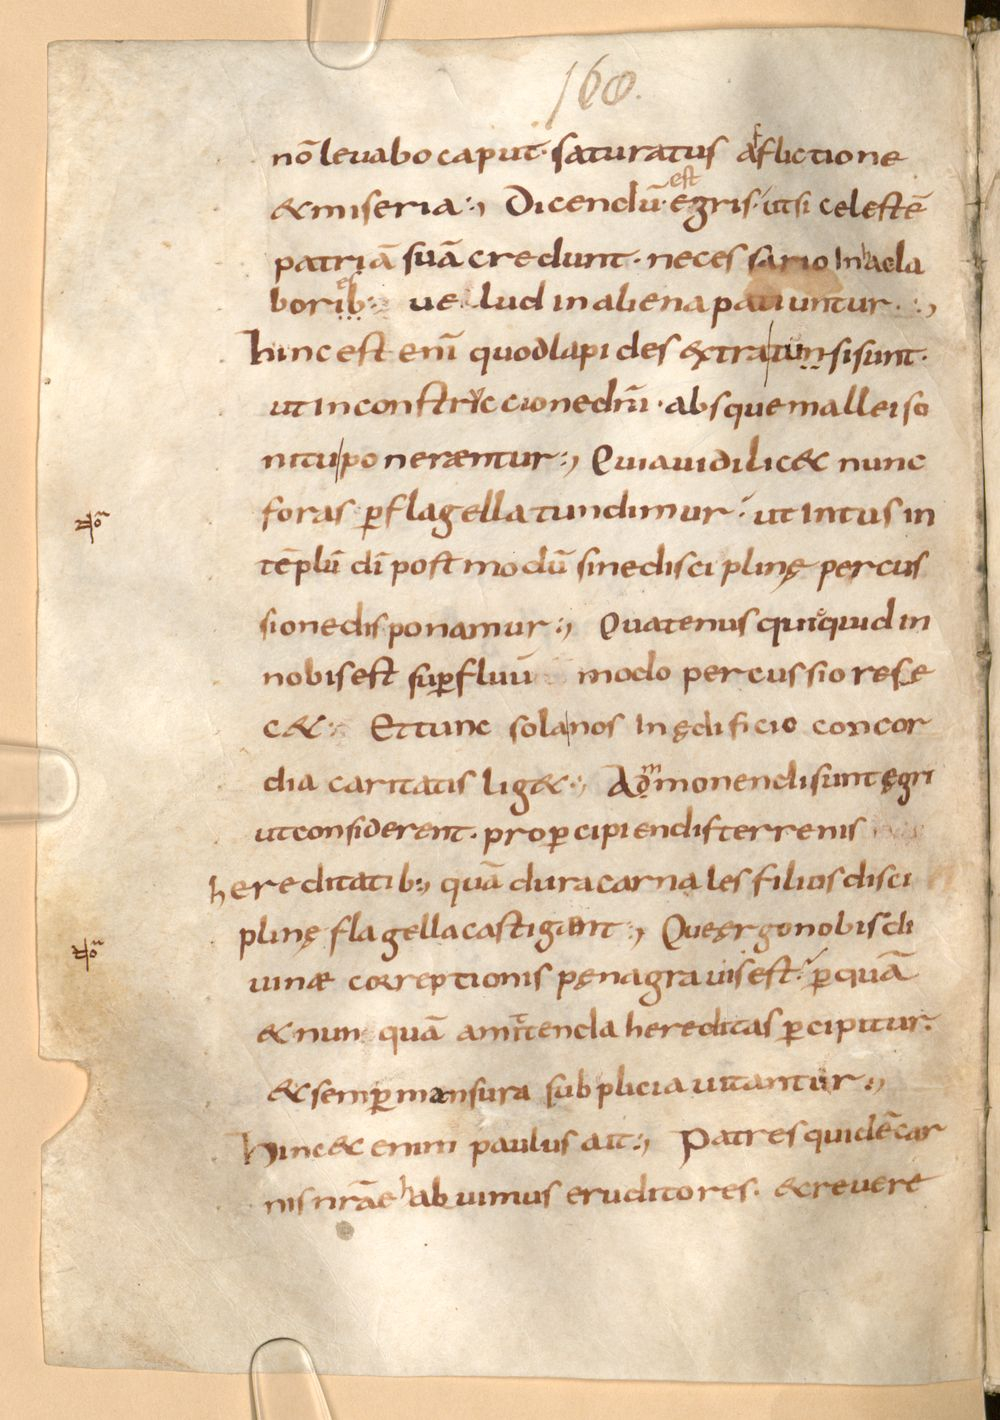 160.
nō levabo caput· saturatus afflictione
& miseria:, Dicendū· est egris· ut si celestē
patriā suā credunt· necessario in hac la
borib; velud in aliena patiuntur·:,
hinc est eni quod lapides extra tunsi sunt·
ut in constructione dnī· absque mallei so
nitu ponerentur:, Quia videlic& nunc
foras p flagella tundimur· ut intus in
tēplū dī post modū sine disciplinę percus
sione disponamur:, Quatenus quicquid in
nobis est supfluū modo percussio rese
c&: Et tunc sola nos in ędificio concor
dia caritatis lig&:, Admonendi sunt ęgri
ut considerent· pro pcipiendis terrenis
hereditatib:, quā dura carnales filios disci
plinę flagella castigant:, Que ergo nobis di
uinæ correptionis pęna gravis est· p quā
& nun quā amittenda hereditas pcipitur·
& semp mansura subplicia vitantur:,
hinc & enim paulus ait:, Patres quidē car
nis nrāe habuimus eruditores· & revere